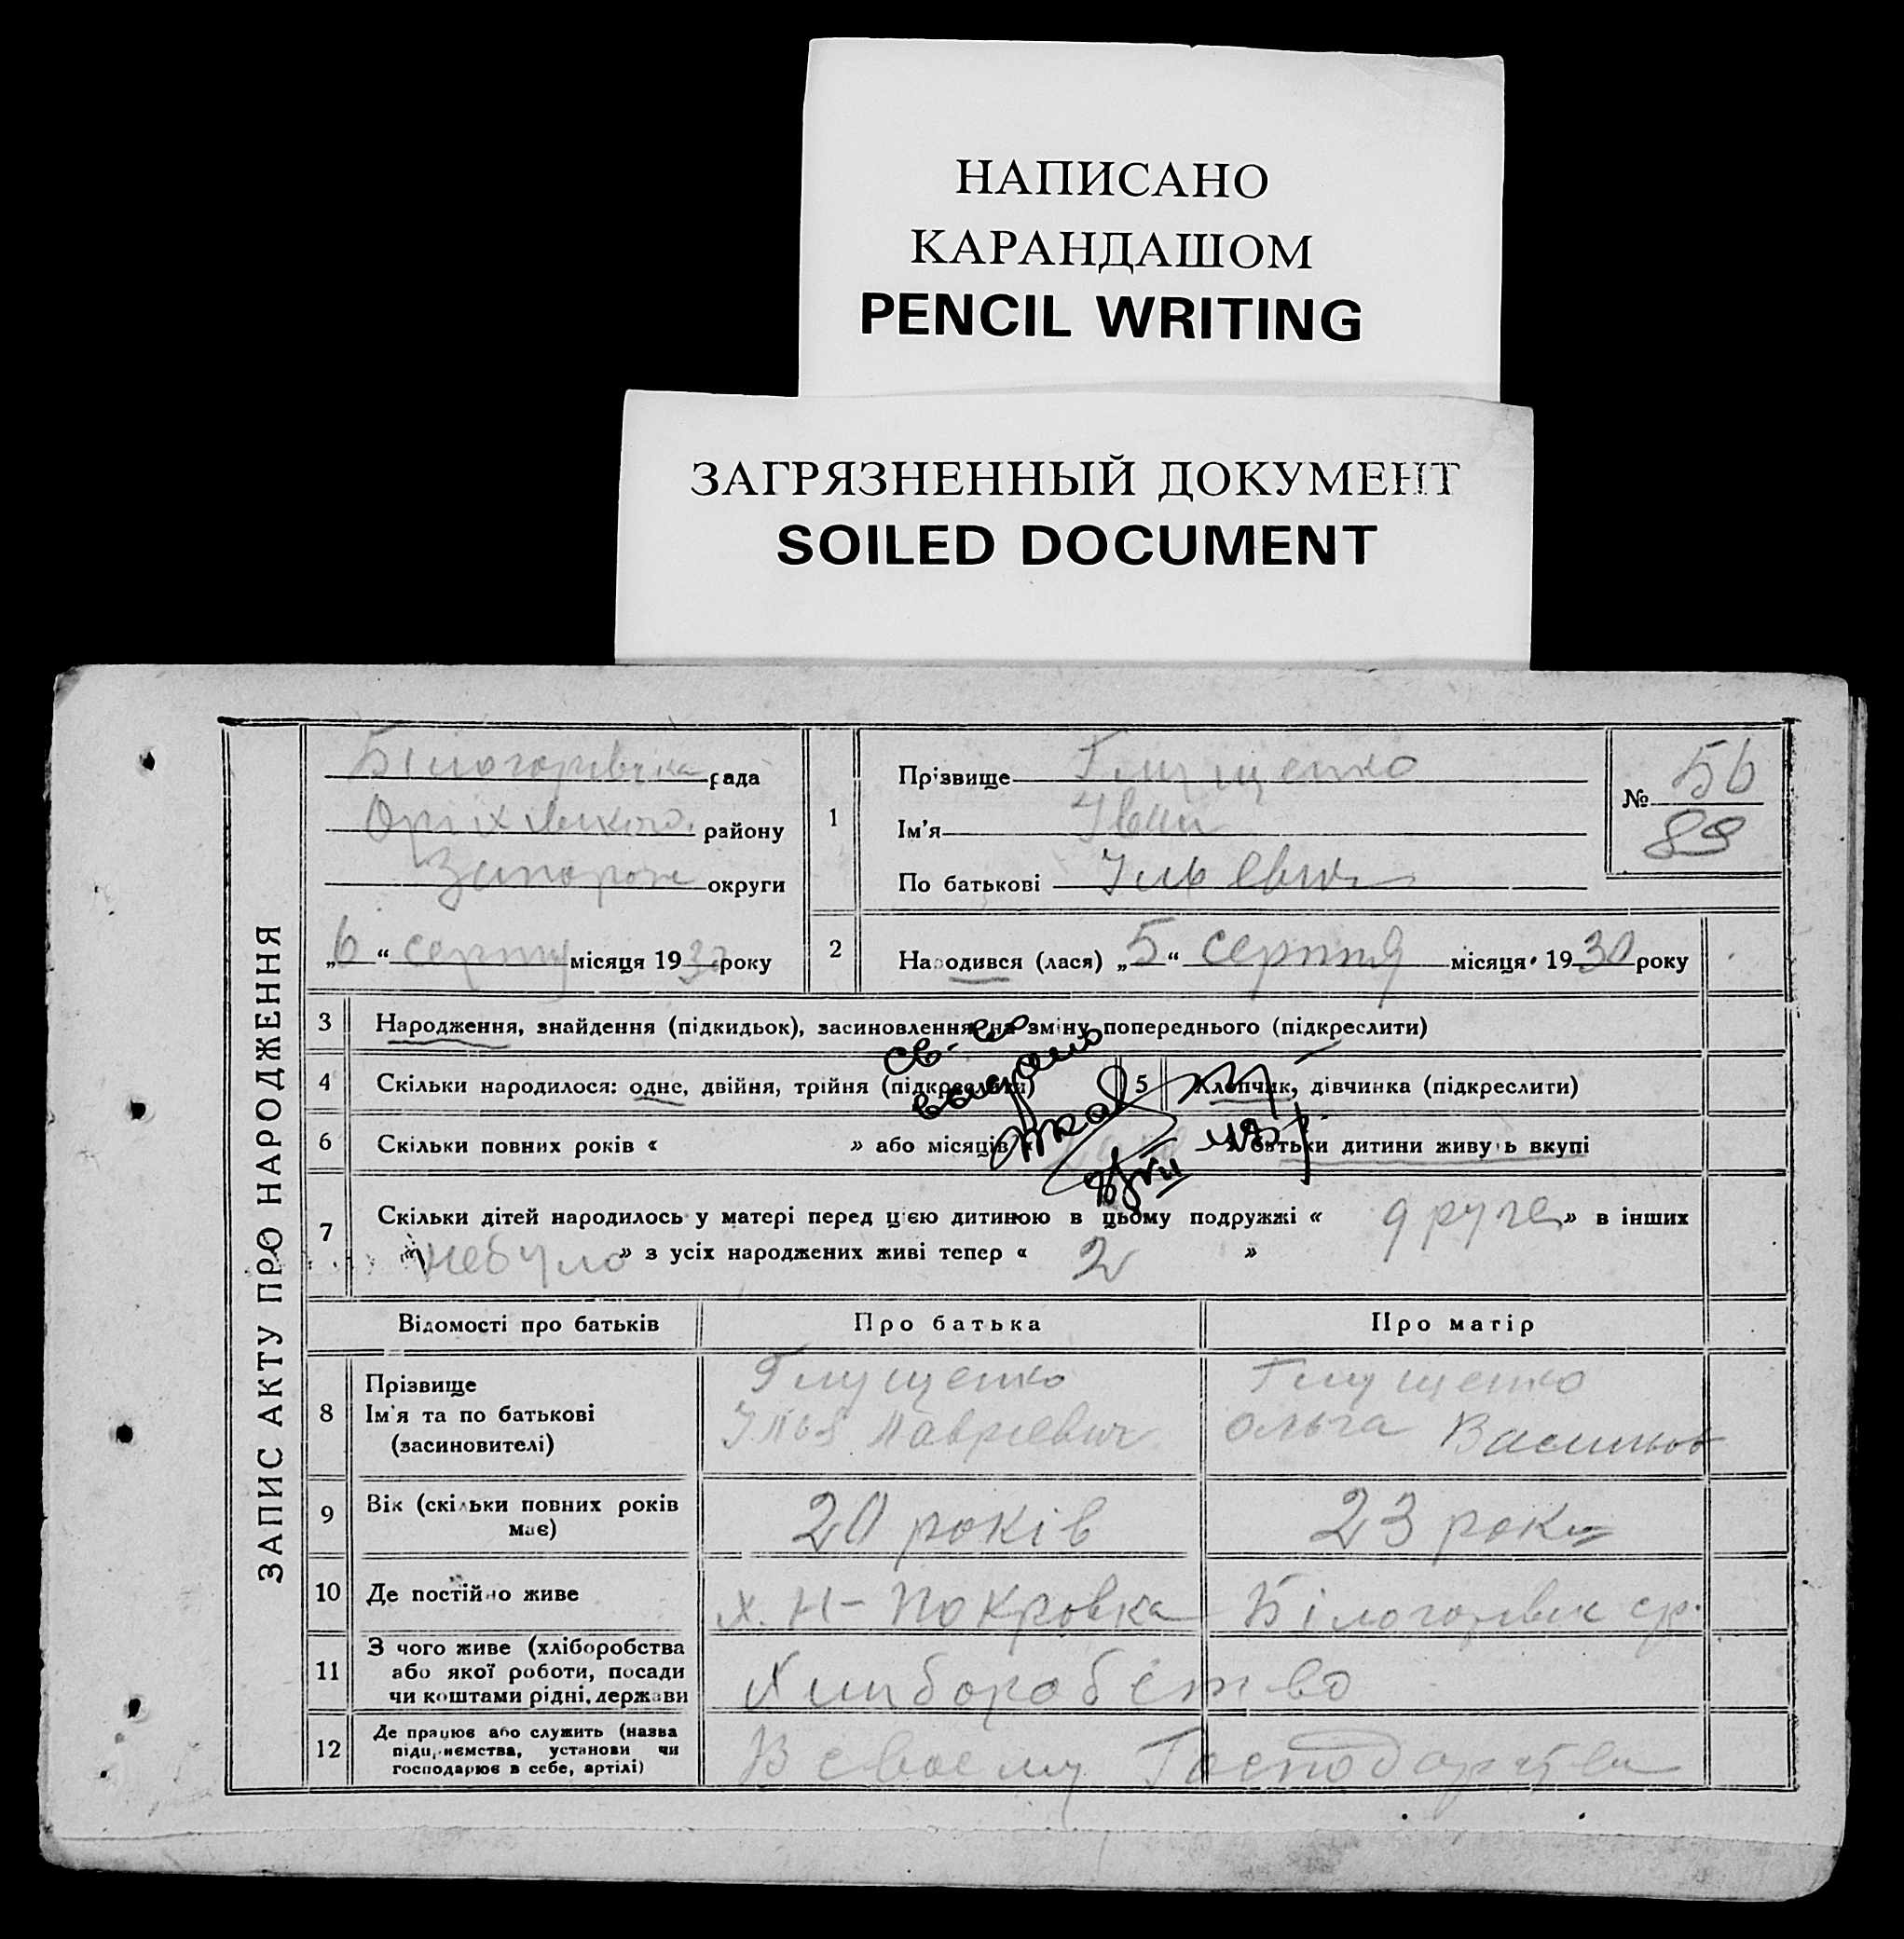 НАПИСАНО
КАРАНДАШОМ
PENCIL WRITING
ЗАГРЯЗНЕННЫЙ ДОКУМЕНТ
SOILED DOCUMENT
ЗАПИС АКТУ ПРО НАРОДЖЕННЯ
Білогорівська рада
Оріхівського району
Запорож округи
„6“ серпня місяця 1930 року
1
Прізвище Глущенко
Ім'я Іван
По батькові Ільевич
№ 56
89
2
Народився (лася) „5“ серпня місяця 1930 року
3 Народження, знайдення (підкидьок), засиновлення на зміну попереднього (підкреслити)
4 Скільки народилося: одне, двійня, трійня (підкреслити) 5 Хлопчик, дівчинка (підкреслити)
6 Скільки повних років « » або місяців « Батьки дитини живуть вкупі
св-во
выдано
7 Скільки дітей народилось у матері перед цією дитиною в цьому подружжі « друге » в інших
« небуло » з усіх народжених живі тепер « 2 »
Відомості про батьків Про батька Про матір
8 Прізвище Глущенко Глущенко
Ім'я та по батькові Ілья Лавріевич Ольга Васильов
(засиновителі)
9 Вік (скільки повних років має) 20 років 23 роки
10 Де постійно живе х. Н-Покровка Білогорівск ср.
11 З чого живе (хліборобства або якої роботи, посади чи коштами рідні, держави Хліборобство
12 Де працює або служить (назва підприємства, установи чи господарює в себе, артілі) В своему Господарстві